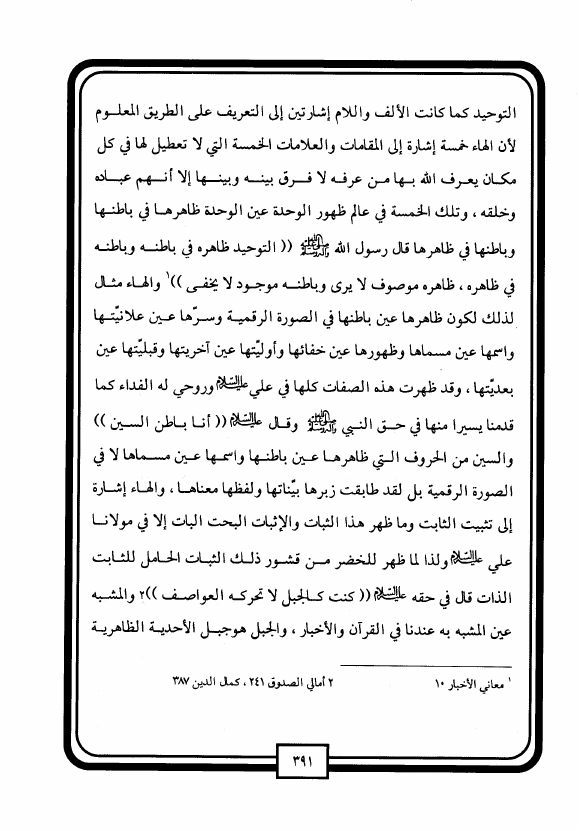 التوحيد كما كانت الألف واللام إشارتين إلى التعريف على الطريق المعلوم
لأن الهاء خمسة إشارة إلى المقامات والعلامات الخمسة التي لا تعطيل لها في كل
مكان يعرف الله بها من عرفه لا فرق بينه وبينها إلا أنهم عباده
وخلقه ، وتلك الخمسة في عالم ظهور الوحدة عين الوحدة ظاهرها في باطنها
وباطنها في ظاهرها قال رسول الله ﷺ (( التوحيد ظاهره في باطنه وباطنه
في ظاهره ، ظاهره موصوف لا يرى وباطنه موجود لا يخفى ))١ والهاء مثال
لذلك لكون ظاهرها عين باطنها في الصورة الرقمية وسرّها عين علانيّتها
واسمها عين مسماها وظهورها عين خفائها وأوليّتها عين آخريتها وقبليّتها عين
بعديّتها ، وقد ظهرت هذه الصفات كلها في علي عليه السلام وروحي له الفداء كما
قدمنا يسيرا منها في حق النبي ﷺ وقال عليه السلام (( أنا باطن السين ))
والسين من الحروف التي ظاهرها عين باطنها واسمها عين مسماها لا في
الصورة الرقمية بل لقد طابقت زبرها بيّناتها ولفظها معناها ، والهاء إشارة
إلى تثبيت الثابت وما ظهر هذا الثبات والإثبات البحت البات إلا في مولانا
علي عليه السلام ولذا لما ظهر للخضر من قشور ذلك الثبات الحامل للثابت
الذات قال في حقه عليه السلام (( كنت كالجبل لا تحركه العواصف ))٢ والمشبه
عين المشبه به عندنا في القرآن والأخبار ، والجبل هوجبل الأحدية الظاهرية
١ معاني الأخبار ١٠ ٢ أمالي الصدوق ٢٤١ ، كمال الدين ٣٨٧
٣٩١